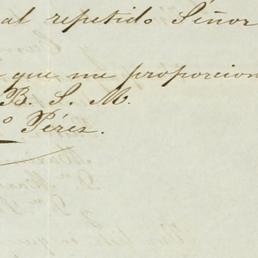 al repetido Señor
que me proporcion
B. S. M.
Pérez.